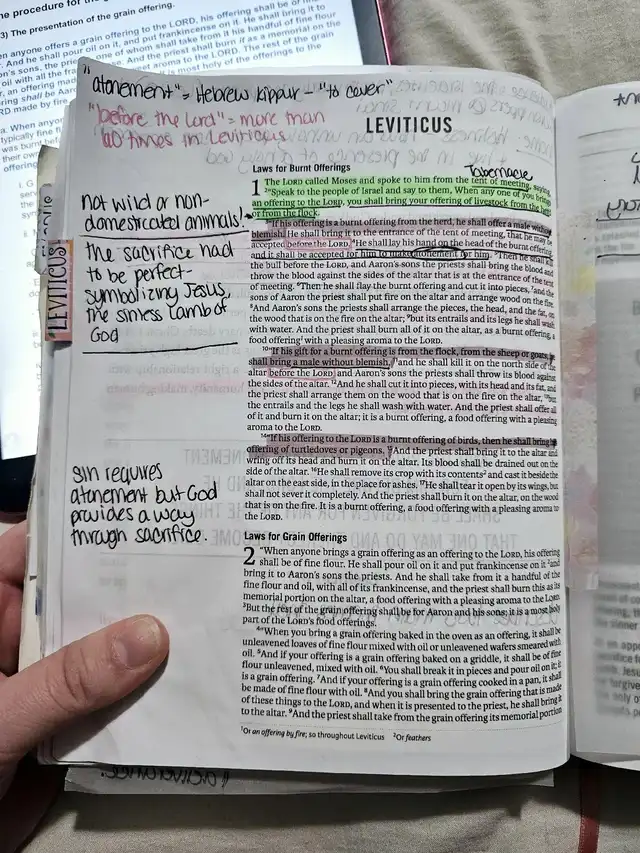 (3) The presentation of the grain offering.
"atonement" = Hebrew kippur - "to cover"
"before the Lord" = more than
60 times in Leviticus
LEVITICUS
LEVITICUS
not wild or non-
domesticated animals!
the sacrifice had
to be perfect-
symbolizing Jesus,
the sinless Lamb of
God
sin requires
atonement but God
provides a way
through sacrifice.
Laws for Burnt Offerings
Tabernacle
1 The LORD called Moses and spoke to him from the tent of meeting, saying,
2"Speak to the people of Israel and say to them, When any one of you brings
an offering to the LORD, you shall bring your offering of livestock from the herd
or from the flock.
3"If his offering is a burnt offering from the herd, he shall offer a male without
blemish. He shall bring it to the entrance of the tent of meeting, that he may be
accepted before the LORD. 4He shall lay his hand on the head of the burnt offering,
and it shall be accepted for him to make atonement for him. 5Then he shall kill
the bull before the LORD, and Aaron's sons the priests shall bring the blood and
throw the blood against the sides of the altar that is at the entrance of the tent
of meeting. 6Then he shall flay the burnt offering and cut it into pieces, 7and the
sons of Aaron the priest shall put fire on the altar and arrange wood on the fire.
8And Aaron's sons the priests shall arrange the pieces, the head, and the fat, on
the wood that is on the fire on the altar; 9but its entrails and its legs he shall wash
with water. And the priest shall burn all of it on the altar, as a burnt offering, a
food offering1 with a pleasing aroma to the LORD.
10"If his gift for a burnt offering is from the flock, from the sheep or goats, he
shall bring a male without blemish, 11and he shall kill it on the north side of the
altar before the LORD, and Aaron's sons the priests shall throw its blood against
the sides of the altar. 12And he shall cut it into pieces, with its head and its fat, and
the priest shall arrange them on the wood that is on the fire on the altar, 13but
the entrails and the legs he shall wash with water. And the priest shall offer all
of it and burn it on the altar; it is a burnt offering, a food offering with a pleasing
aroma to the LORD.
14"If his offering to the LORD is a burnt offering of birds, then he shall bring his
offering of turtledoves or pigeons. 15And the priest shall bring it to the altar and
wring off its head and burn it on the altar. Its blood shall be drained out on the
side of the altar. 16He shall remove its crop with its contents2 and cast it beside the
altar on the east side, in the place for ashes. 17He shall tear it open by its wings, but
shall not sever it completely. And the priest shall burn it on the altar, on the wood
that is on the fire. It is a burnt offering, a food offering with a pleasing aroma to
the LORD.
Laws for Grain Offerings
2 "When anyone brings a grain offering as an offering to the LORD, his offering
shall be of fine flour. He shall pour oil on it and put frankincense on it 2and
bring it to Aaron's sons the priests. And he shall take from it a handful of the
fine flour and oil, with all of its frankincense, and the priest shall burn this as its
memorial portion on the altar, a food offering with a pleasing aroma to the LORD.
3But the rest of the grain offering shall be for Aaron and his sons; it is a most holy
part of the LORD's food offerings.
4"When you bring a grain offering baked in the oven as an offering, it shall be
unleavened loaves of fine flour mixed with oil or unleavened wafers smeared with
oil. 5And if your offering is a grain offering baked on a griddle, it shall be of fine
flour unleavened, mixed with oil. 6You shall break it in pieces and pour oil on it; it
is a grain offering. 7And if your offering is a grain offering cooked in a pan, it shall
be made of fine flour with oil. 8And you shall bring the grain offering that is made
of these things to the LORD, and when it is presented to the priest, he shall bring it
to the altar. 9And the priest shall take from the grain offering its memorial portion
1Or an offering by fire; so throughout Leviticus 2Or feathers